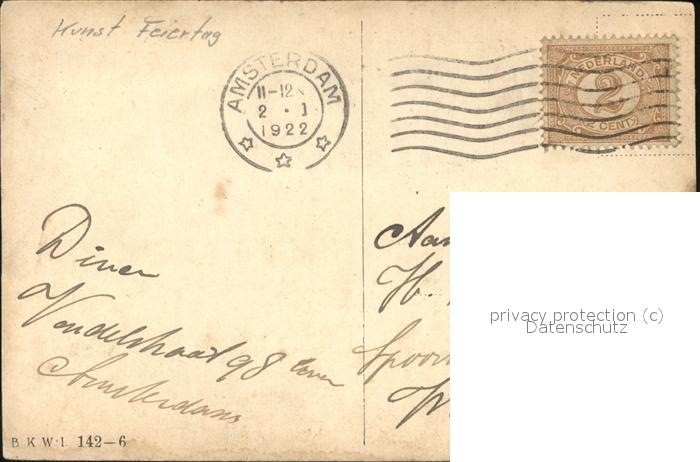 Kunst Feiertag
AMSTERDAM
11-12
2 . 1
1922
NEDERLAND
2
CENT
Diner
Vondelstraat 98 boven
Amsterdam
Aan
H.
Spoor
B K W I 142-6
privacy protection (c)
Datenschutz